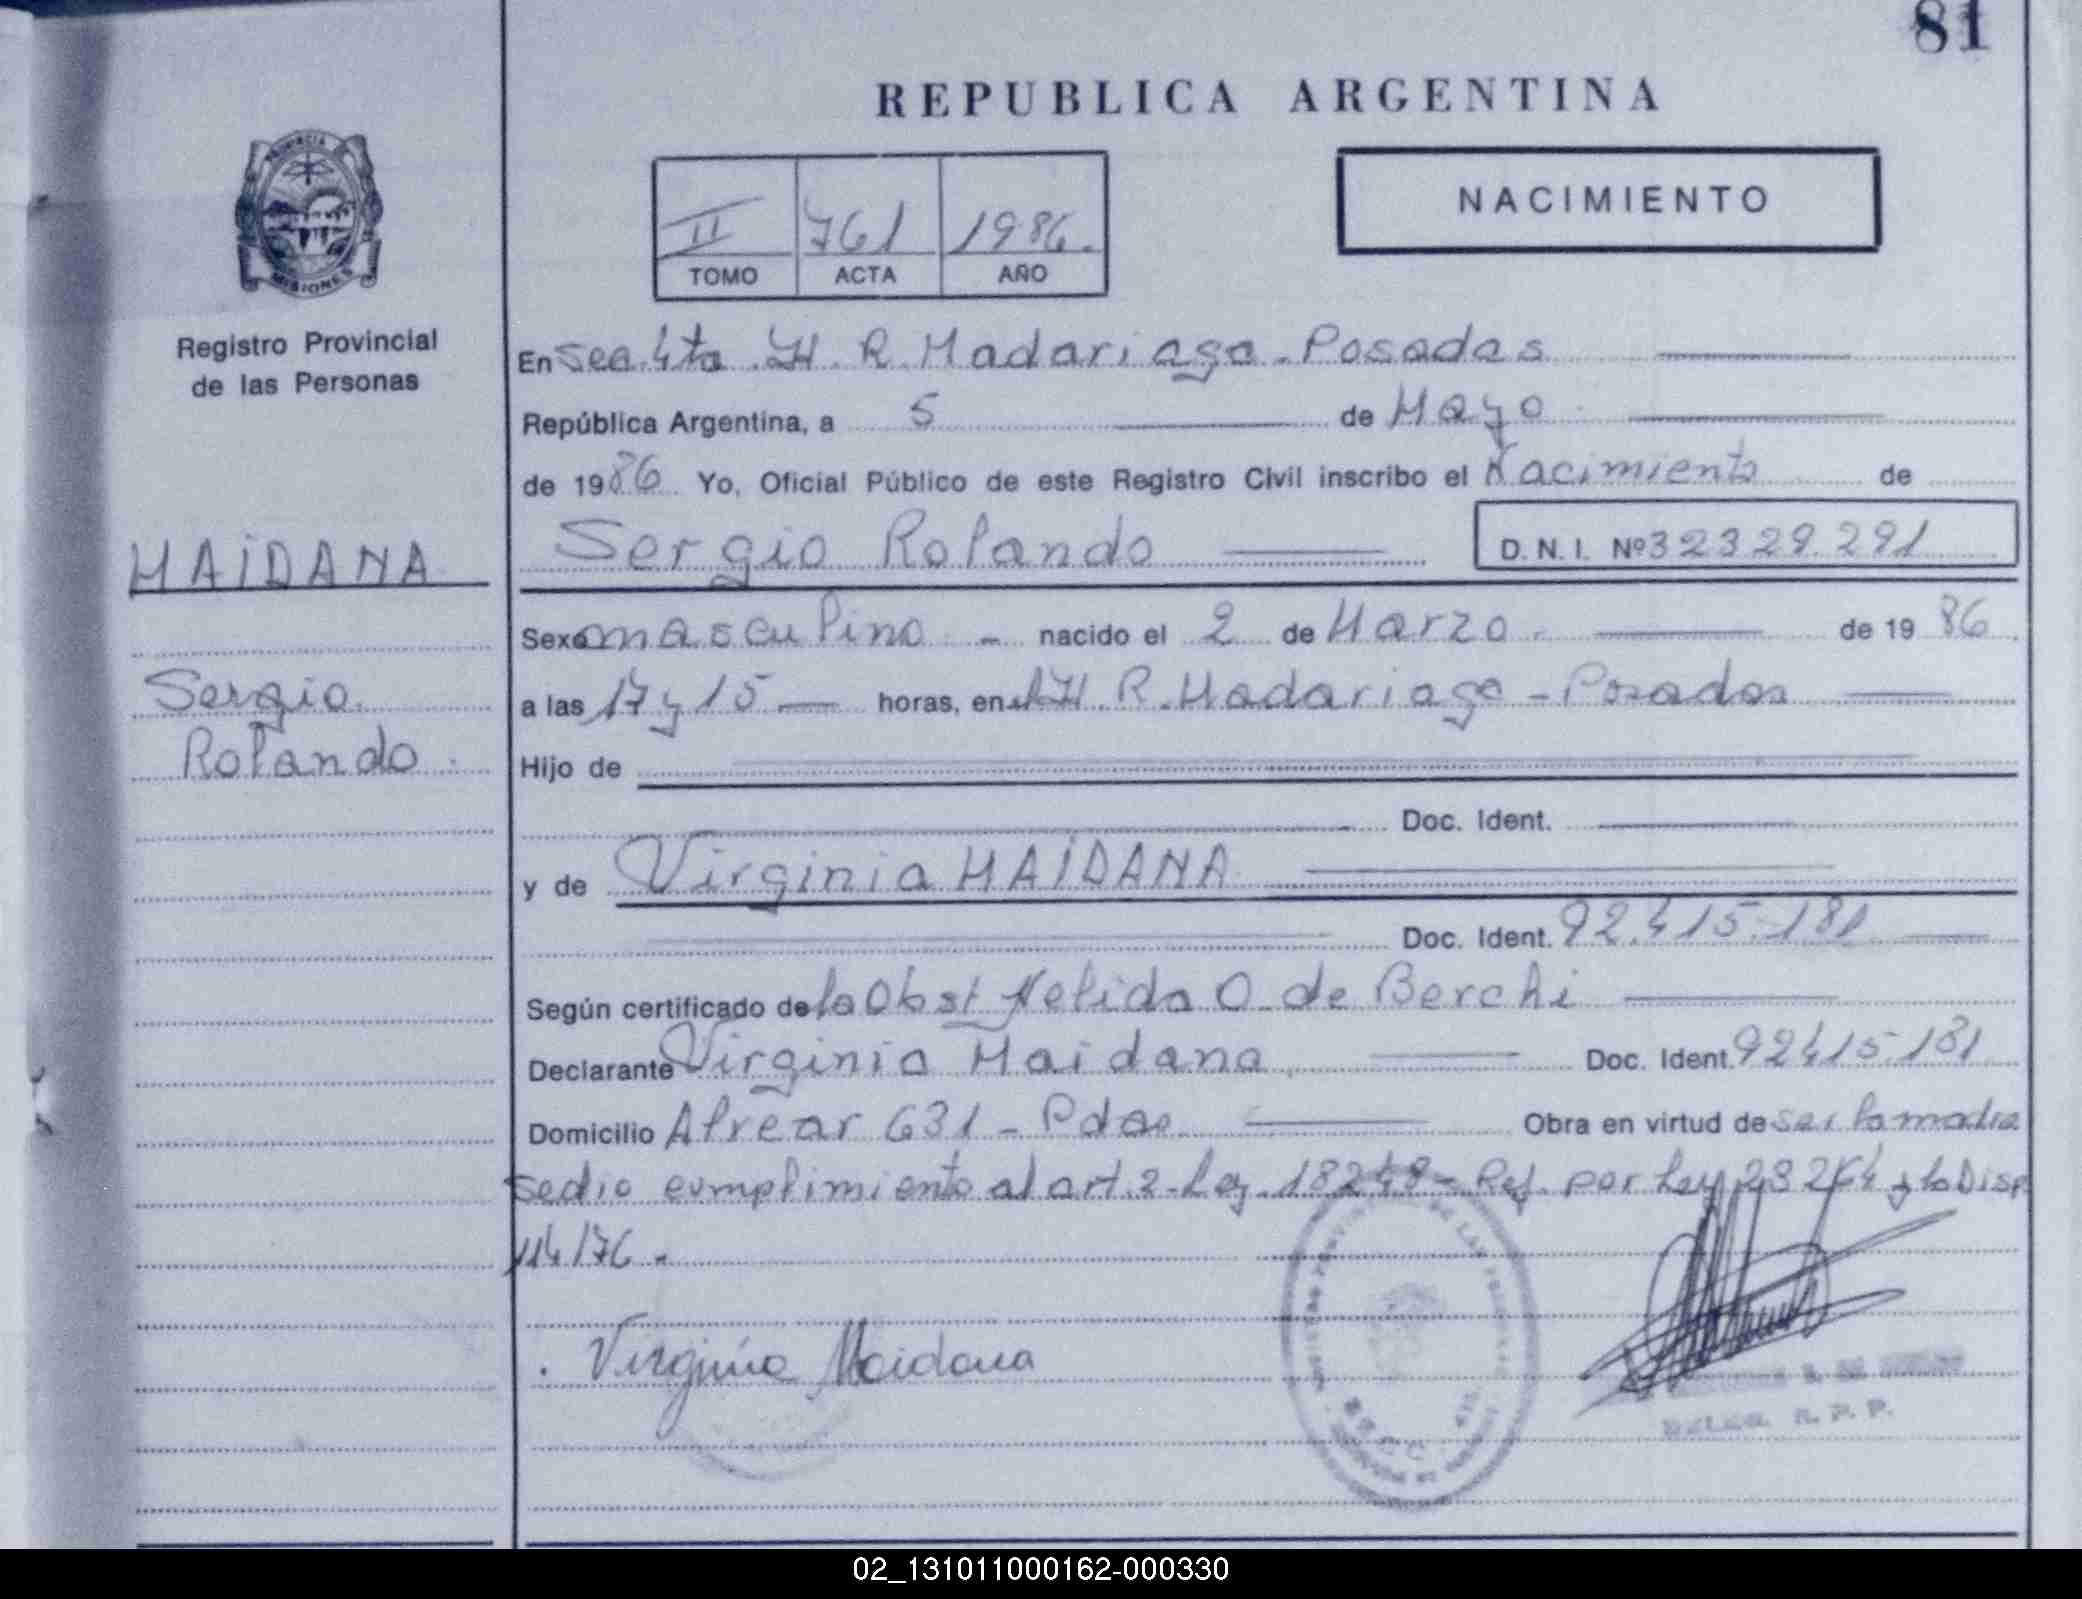 81
REPUBLICA ARGENTINA
PROVINCIA
MISIONES
NACIMIENTO
II 761 1986.
TOMO ACTA AÑO
Registro Provincial
de las Personas
En Sec. 4ta. H. R. Madariaga - Posadas
República Argentina, a 5 de Mayo
de 1986 Yo, Oficial Público de este Registro Civil inscribo el Nacimiento de
MAIDANA
Sergio Rolando D.N.I. Nº 32329.291
Sexo masculino - nacido el 2 de Marzo. de 1986.
Sergio
Rolando.
a las 17 y 15 — horas, en H. R. Madariaga - Posadas
Hijo de
Doc. Ident.
y de Virginia MAIDANA
Doc. Ident. 92.415.181
Según certificado de la Obst Nelida O. de Berchi
Declarante Virginia Maidana. Doc. Ident. 92415.181
Domicilio Alvear 631 - Pdas Obra en virtud de ser la madre
se dio cumplimiento al art. 2 - Ley. 18248 - Ref. por Ley 23264 y la Disp
114/76.
Virginia Maidana
DELEG. R. P. P.
02_131011000162-000330